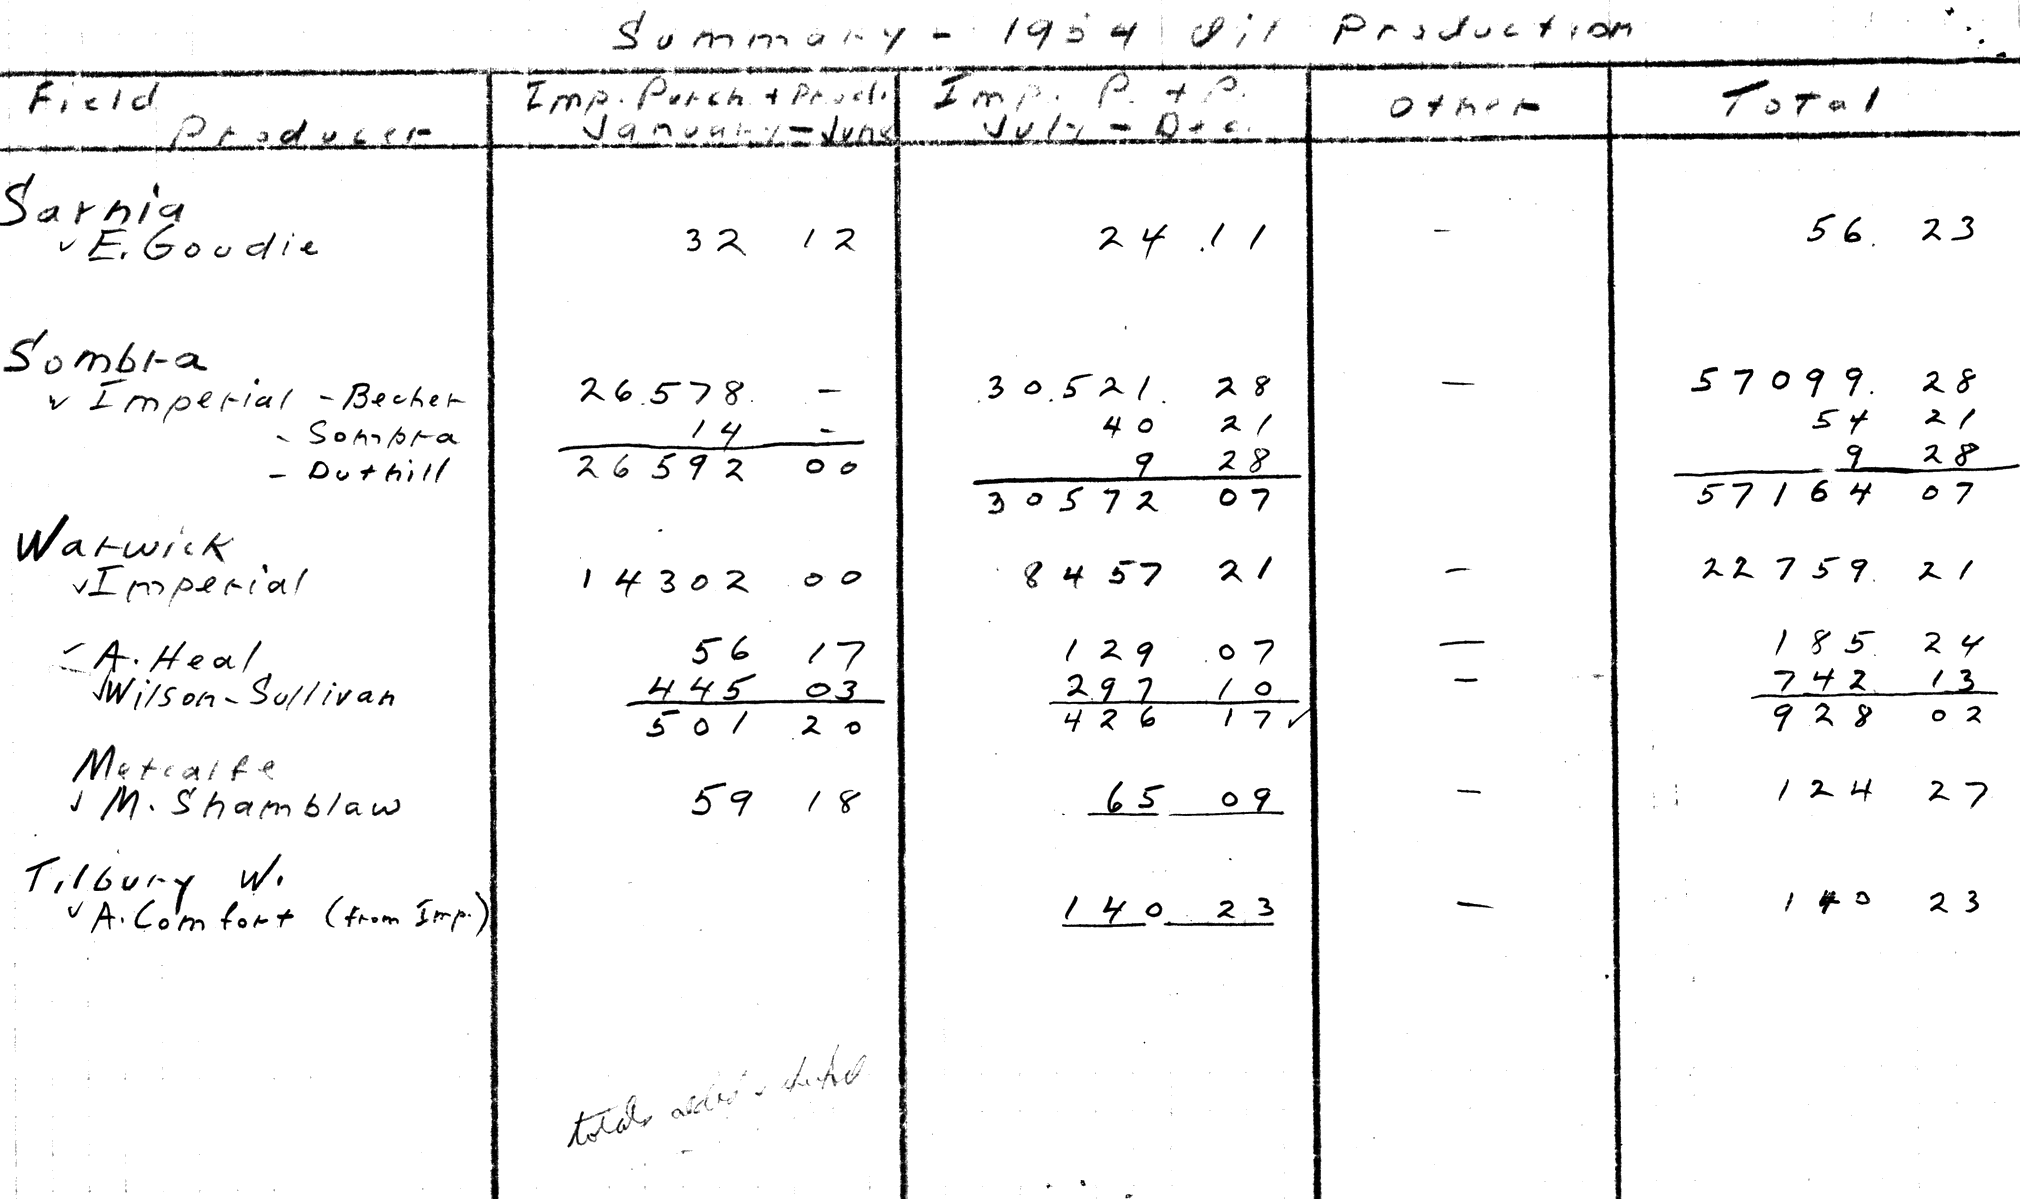 Summary - 1954 Oil Production
Field Producer Imp. Purch + Prod. January - June Imp. P. + P. July - Dec. Other Total
Sarnia
✓ E. Goudie 32 12 24 11 - 56. 23
Sombra
✓ Imperial - Becher 26578. - 30,521. 28 - 57099. 28
- Sombra 14 - 40 21 54 21
- Duthill 26592 00 9 28 9 28
30572 07 57164 07
Warwick
✓ Imperial 14302 00 8457 21 - 22759. 21
✓ A. Heal 56 17 129 07 - 185 24
✓ Wilson-Sullivan 445 03 297 10 - 742 13
501 20 426 17 ✓ 928 02
Metcalfe
✓ M. Shamblaw 59 18 65 09 - 124 27
Tilbury W.
✓ A. Comfort (from Imp.) 140 23 - 140 23
totals added & checked